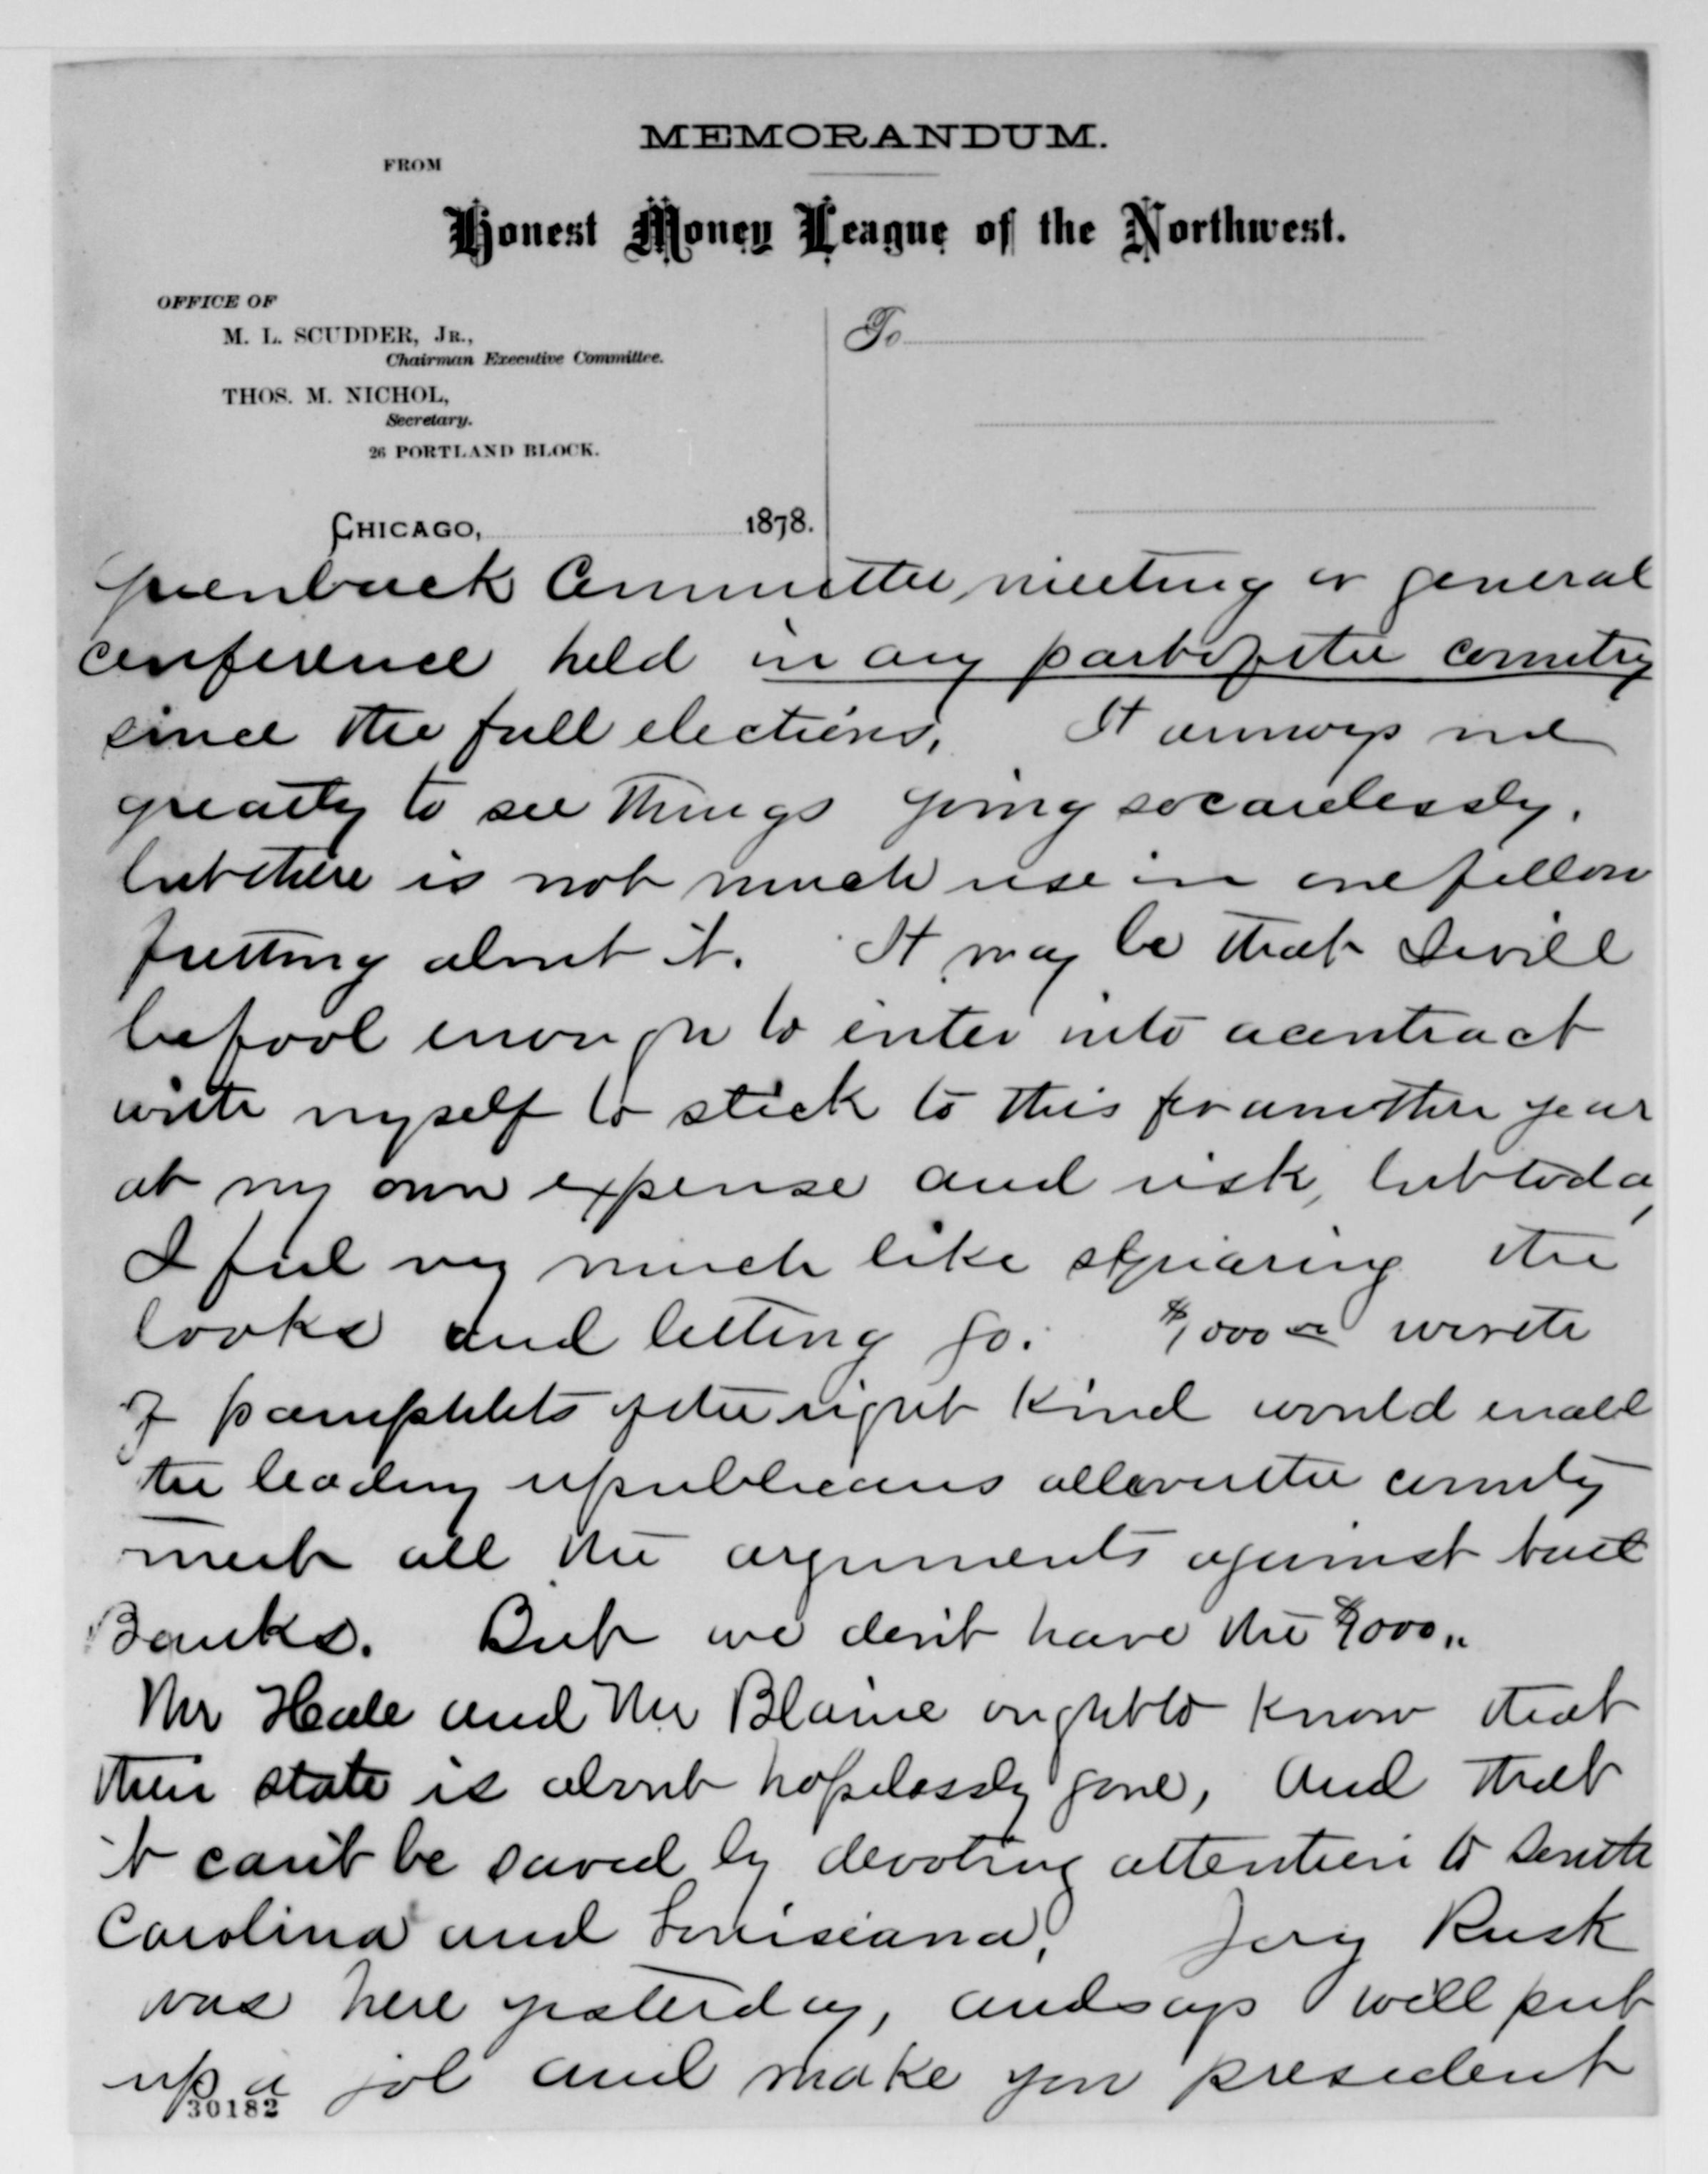 MEMORANDUM.
FROM
Honest Money League of the Northwest.
OFFICE OF
M. L. SCUDDER, JR.,
Chairman Executive Committee.
THOS. M. NICHOL,
Secretary.
26 PORTLAND BLOCK.
To
CHICAGO, 1878.
greenback Committee, meeting or general
conference held in any part of the country
since the fall elections. It annoys me
greatly to see things going so carelessly,
but there is not much use in one fellow
fretting about it. It may be that I will
be fool enough to enter into a contract
with myself to stick to this for another year
at my own expense and risk, but today
I feel very much like squaring the
books and letting go. $1,000 00 worth
of pamphlets of the right kind would enable
the leading republicans all over the country
meet all the arguments against Natl
Banks. But we don't have the $1000"
Mr Hale and Mr Blaine ought to know that
their state is about hopelessly gone, and that
it can't be saved by devoting attention to South
Carolina and Louisiana. Jery Rusk
was here yesterday, and says I will put
up a job and make you president
30182